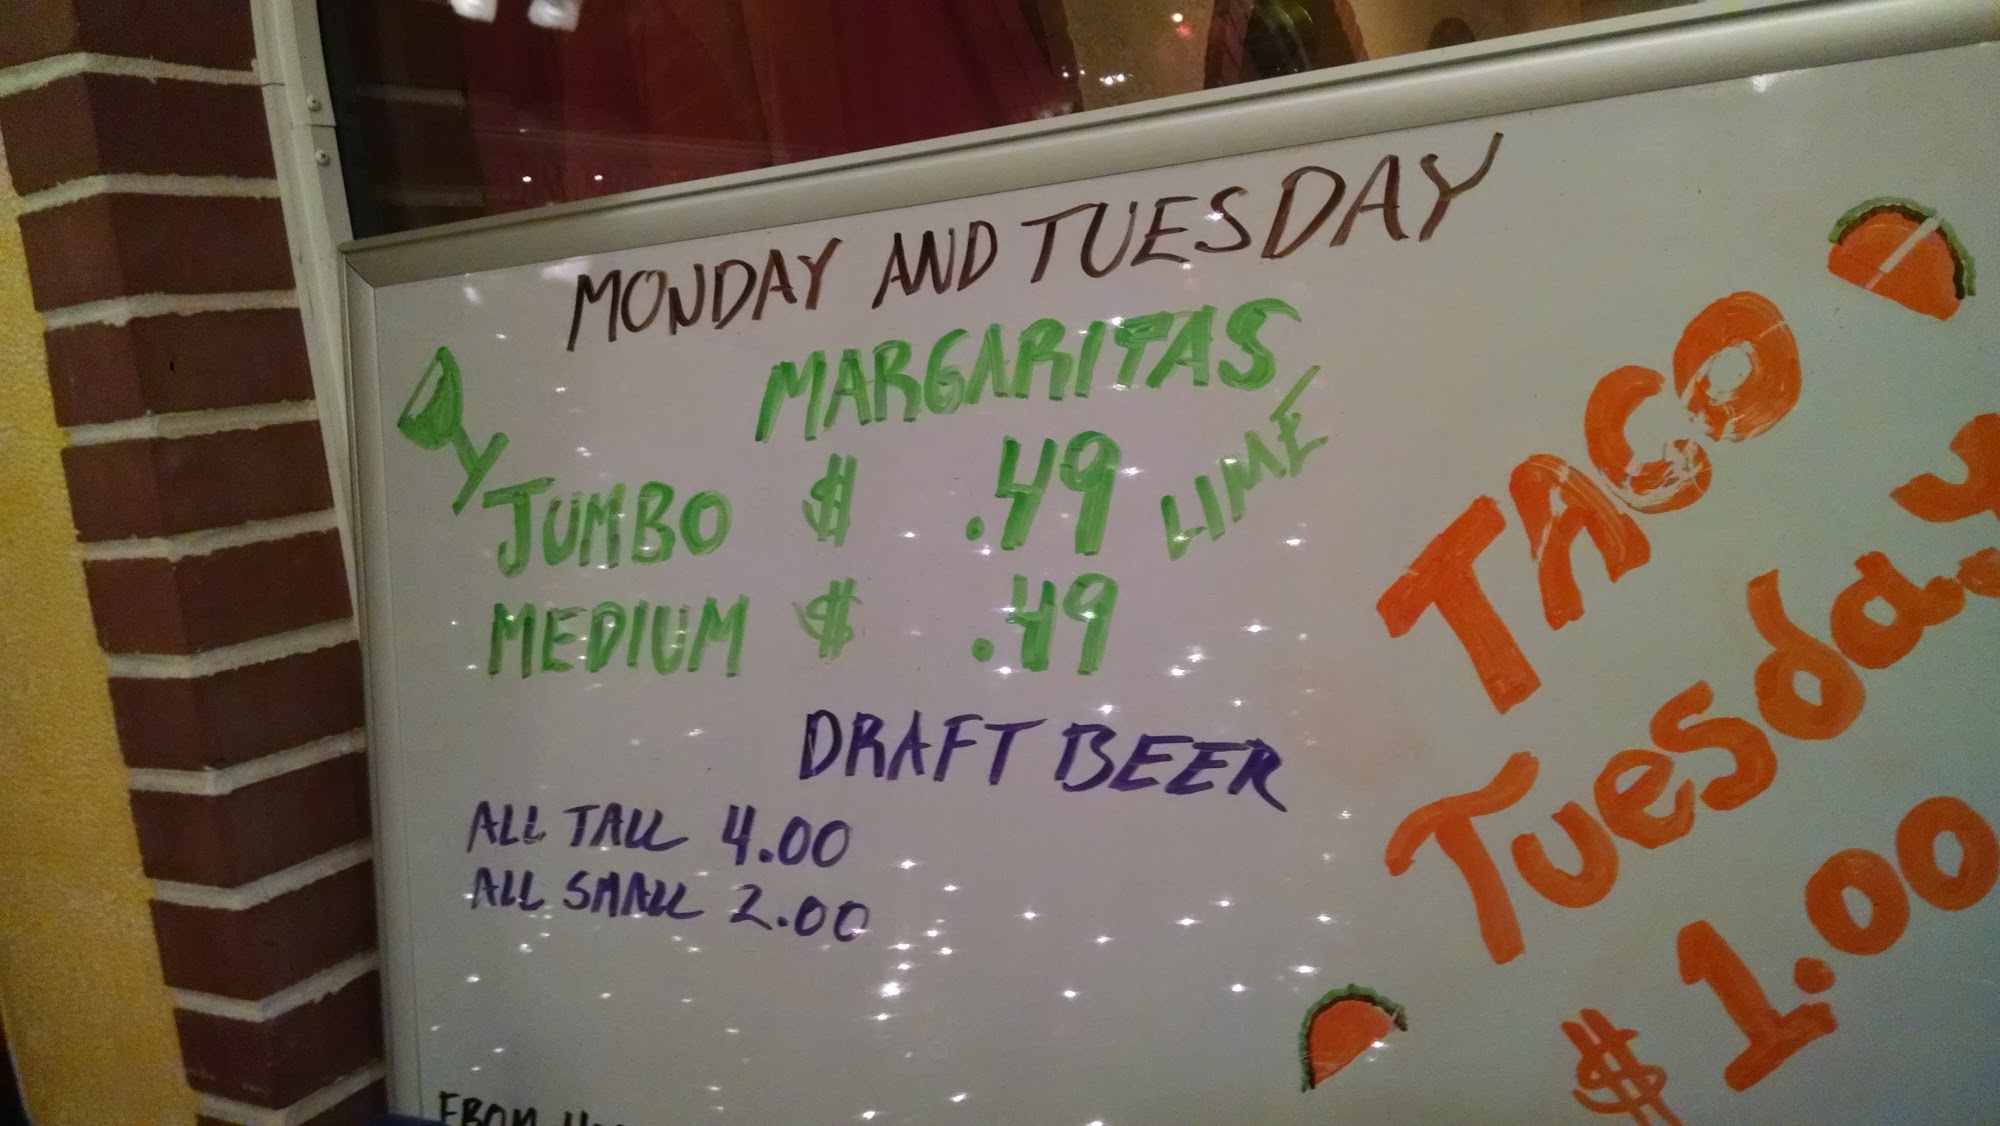 MONDAY AND TUESDAY
MARGARITAS
JUMBO $ .49 LIME
MEDIUM $ .49
DRAFT BEER
ALL TALL 4.00
ALL SMALL 2.00
FROM
TACO
Tuesday
$1.00